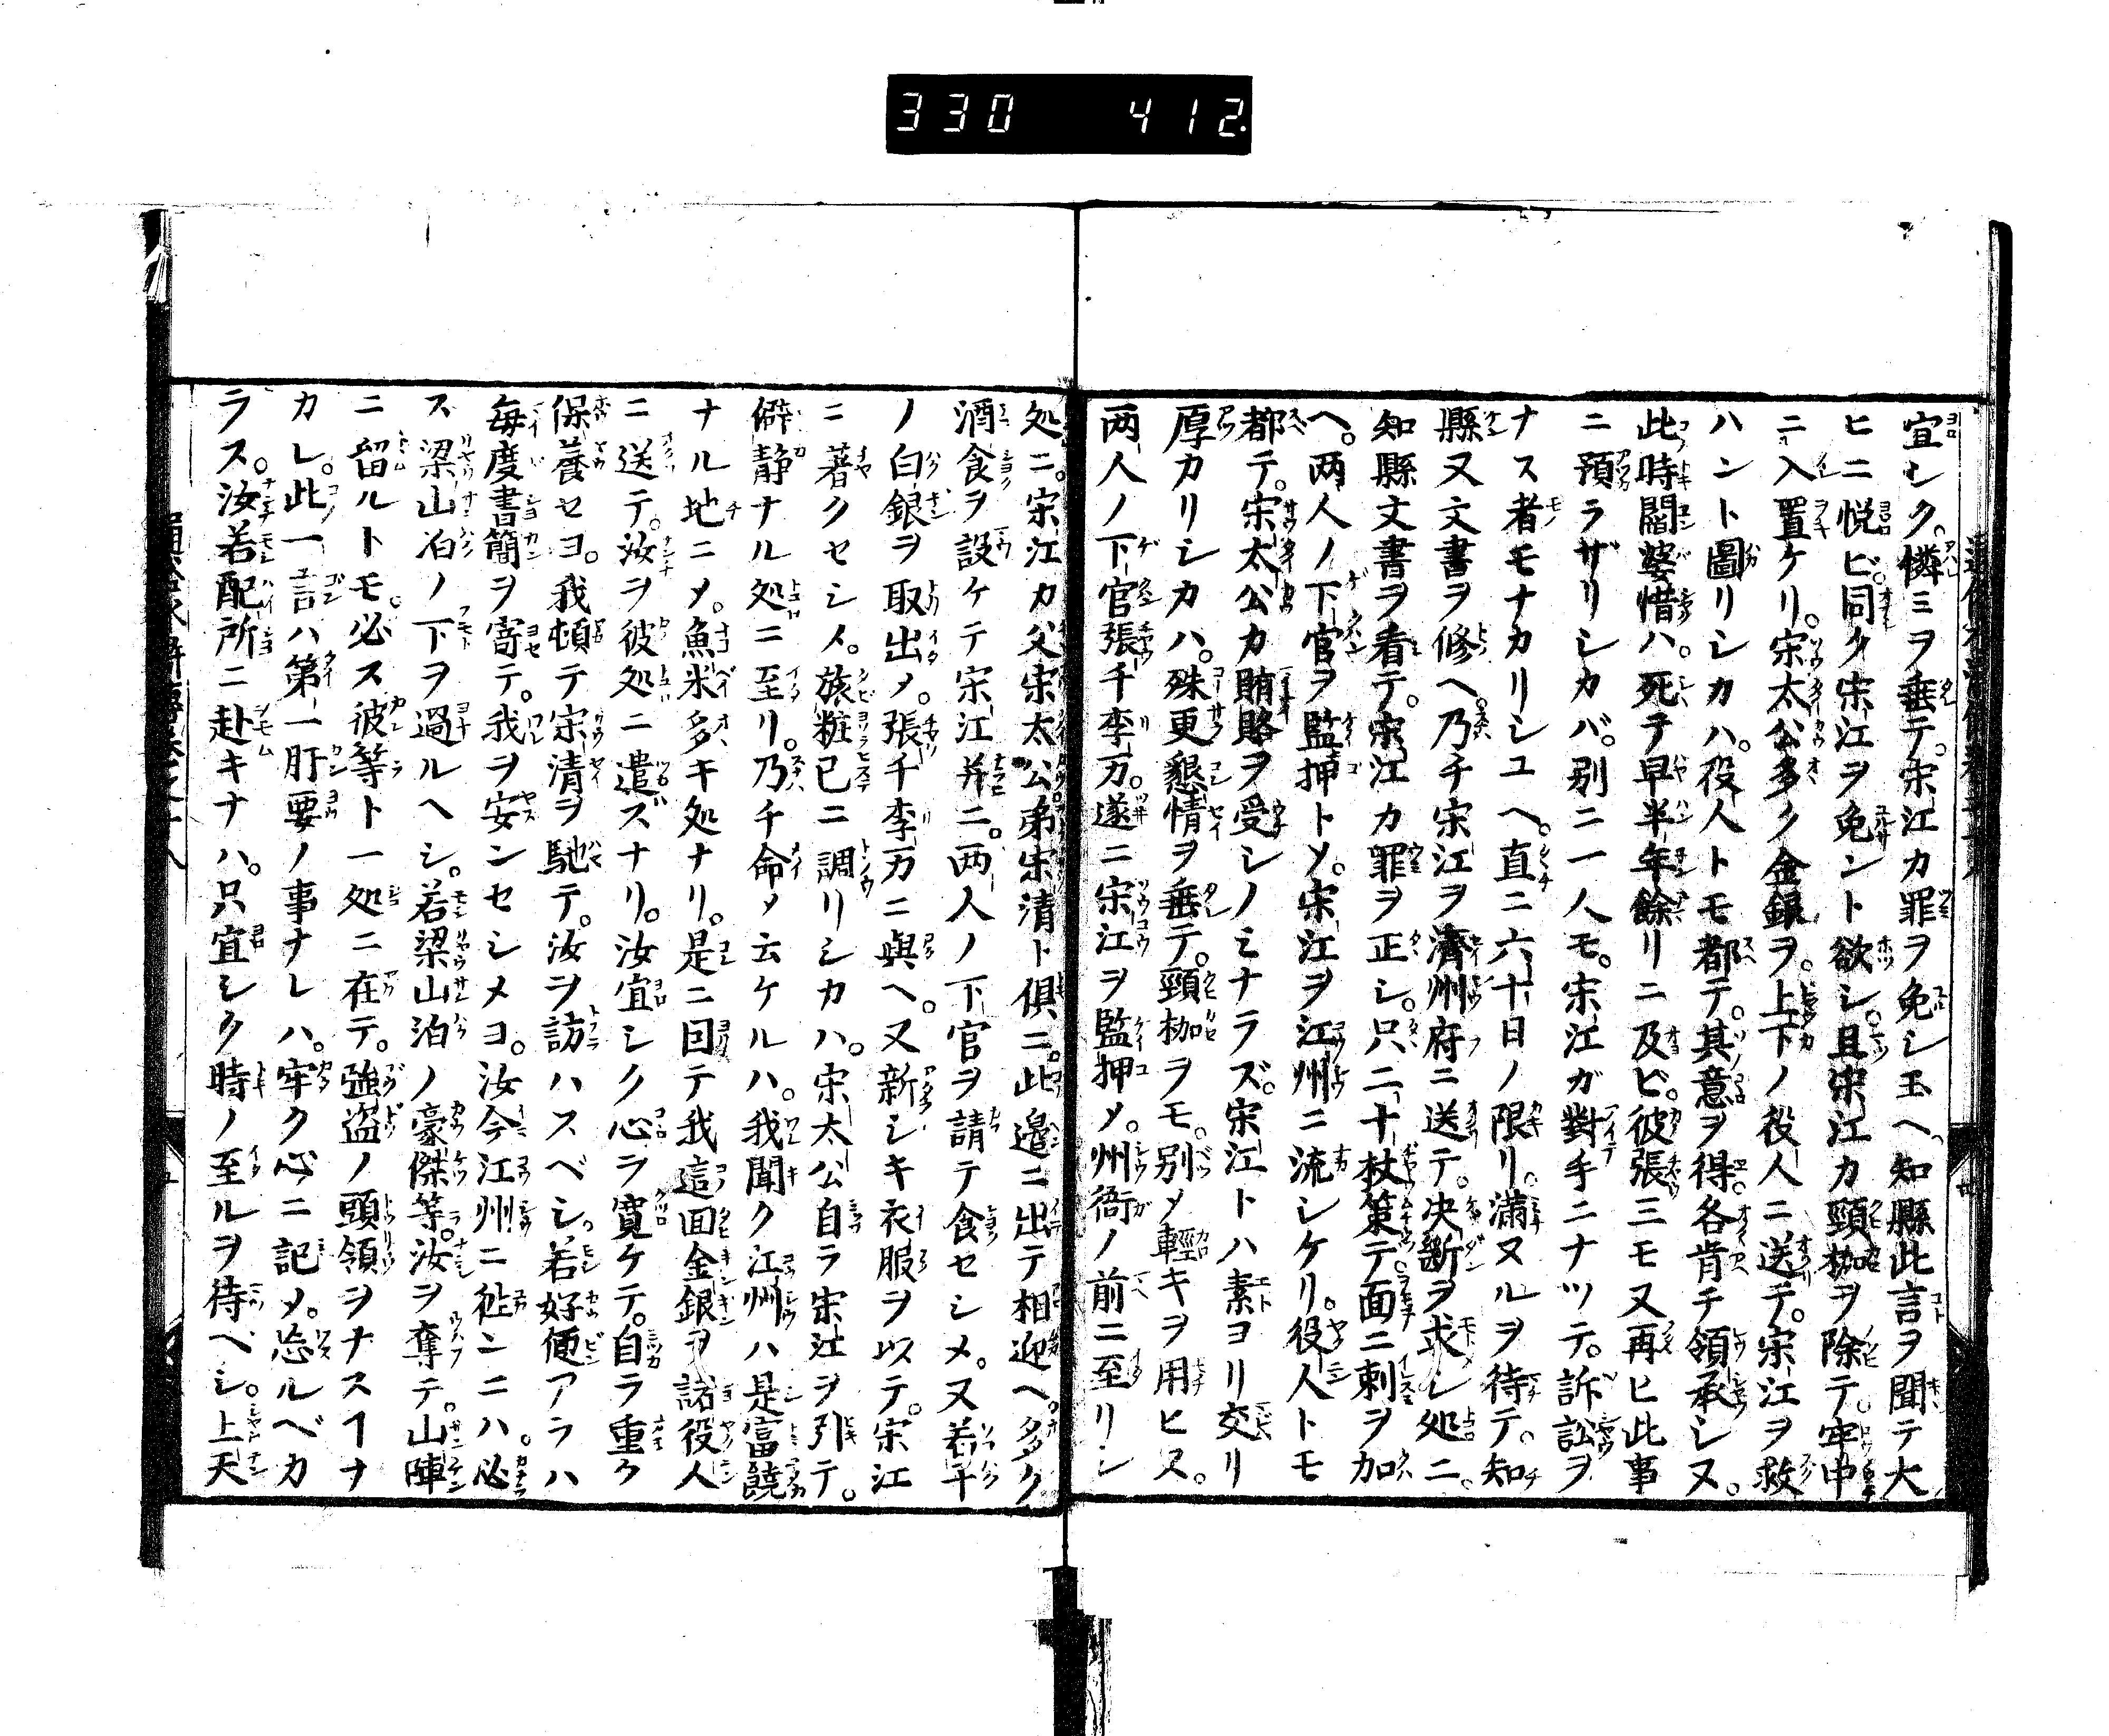 330 412.
宜シク。憐ミヲ垂テ。宋江カ罪ヲ免シ玉ヘ。知縣此言ヲ聞テ大
ヒニ悦ビ。同ク宋江ヲ免ント欲シ。且宋江カ頸枷ヲ除テ。牢中
ニ入置ケリ。宋太公多ノ金銀ヲ。上下ノ役人ニ送テ。宋江ヲ救
ハント圖リシカハ。役人トモ都テ。其意ヲ得各肯チ領承シヌ。
此時閻婆惜ハ。死テ早半年餘リニ及ビ。彼張三モ又再ヒ此事
ニ預ラザリシカバ。別ニ一人モ。宋江ガ對手ニナツテ。訴訟ヲ
ナス者モナカリシユヘ。直ニ六十日ノ限リ。滿ヌルヲ待テ。知
縣又文書ヲ修ヘ。乃チ宋江ヲ濟州府ニ送テ。决斷ヲ求シ処ニ。
知縣文書ヲ看テ。宋江カ罪ヲ正シ。只二十杖策テ。面ニ刺ヲ加
ヘ。两人ノ下官ヲ監押トソ。宋江ヲ江州ニ流シケリ。役人トモ
都テ。宋太公カ賄賂ヲ受シノミナラズ。宋江トハ素ヨリ交リ
厚カリシカハ。殊更懇情ヲ垂テ。頸枷ヲモ。別メ輕キヲ用ヒス。
两人ノ下官張千李万。遂ニ宋江ヲ監押メ。州衙ノ前ニ至リシ
処ニ。宋江カ父宋太公弟宋清ト俱ニ。此邉ニ出テ相迎ヘ。多ク
酒食ヲ設ケテ宋江并ニ。两人ノ下官ヲ請テ食セシメ。又若干
ノ白銀ヲ取出メ。張千李万ニ與ヘ。又新シキ衣服ヲ以テ。宋江
ニ著クセシメ。旅粧已ニ調リシカハ。宋太公自ラ宋江ヲ引テ。
僻静ナル処ニ至リ。乃チ命メ云ケルハ。我聞ク江州ハ是冨饒
ナル地ニメ。魚米多キ処ナリ。是ニ因テ我這囬金銀ヲ諸役人
ニ送テ。汝ヲ彼処ニ遣ズナリ。汝宜シク心ラ寛ケテ。自ラ重ク
保養セヨ。我頓テ宋清ヲ馳テ。汝ヲ訪ハスベシ。若好便アラハ
每度書簡ヲ寄テ。我ヲ安ンセシメヨ。汝今江州ニ徃ンニハ。必
ス梁山泊ノ下ヲ過ルヘシ。若梁山泊ノ豪傑等。汝ヲ奪テ。山陣
ニ留ルトモ。必ス彼等ト一処ニ在テ。強盗ノ頭領ヲナスヿナ
カレ。此一言ハ第一肝要ノ事ナレハ。牢ク心ニ記メ。忘ルベカ
ラス。汝若配所ニ赴キナハ。只宜シク時ノ至ルヲ待ベシ。上天